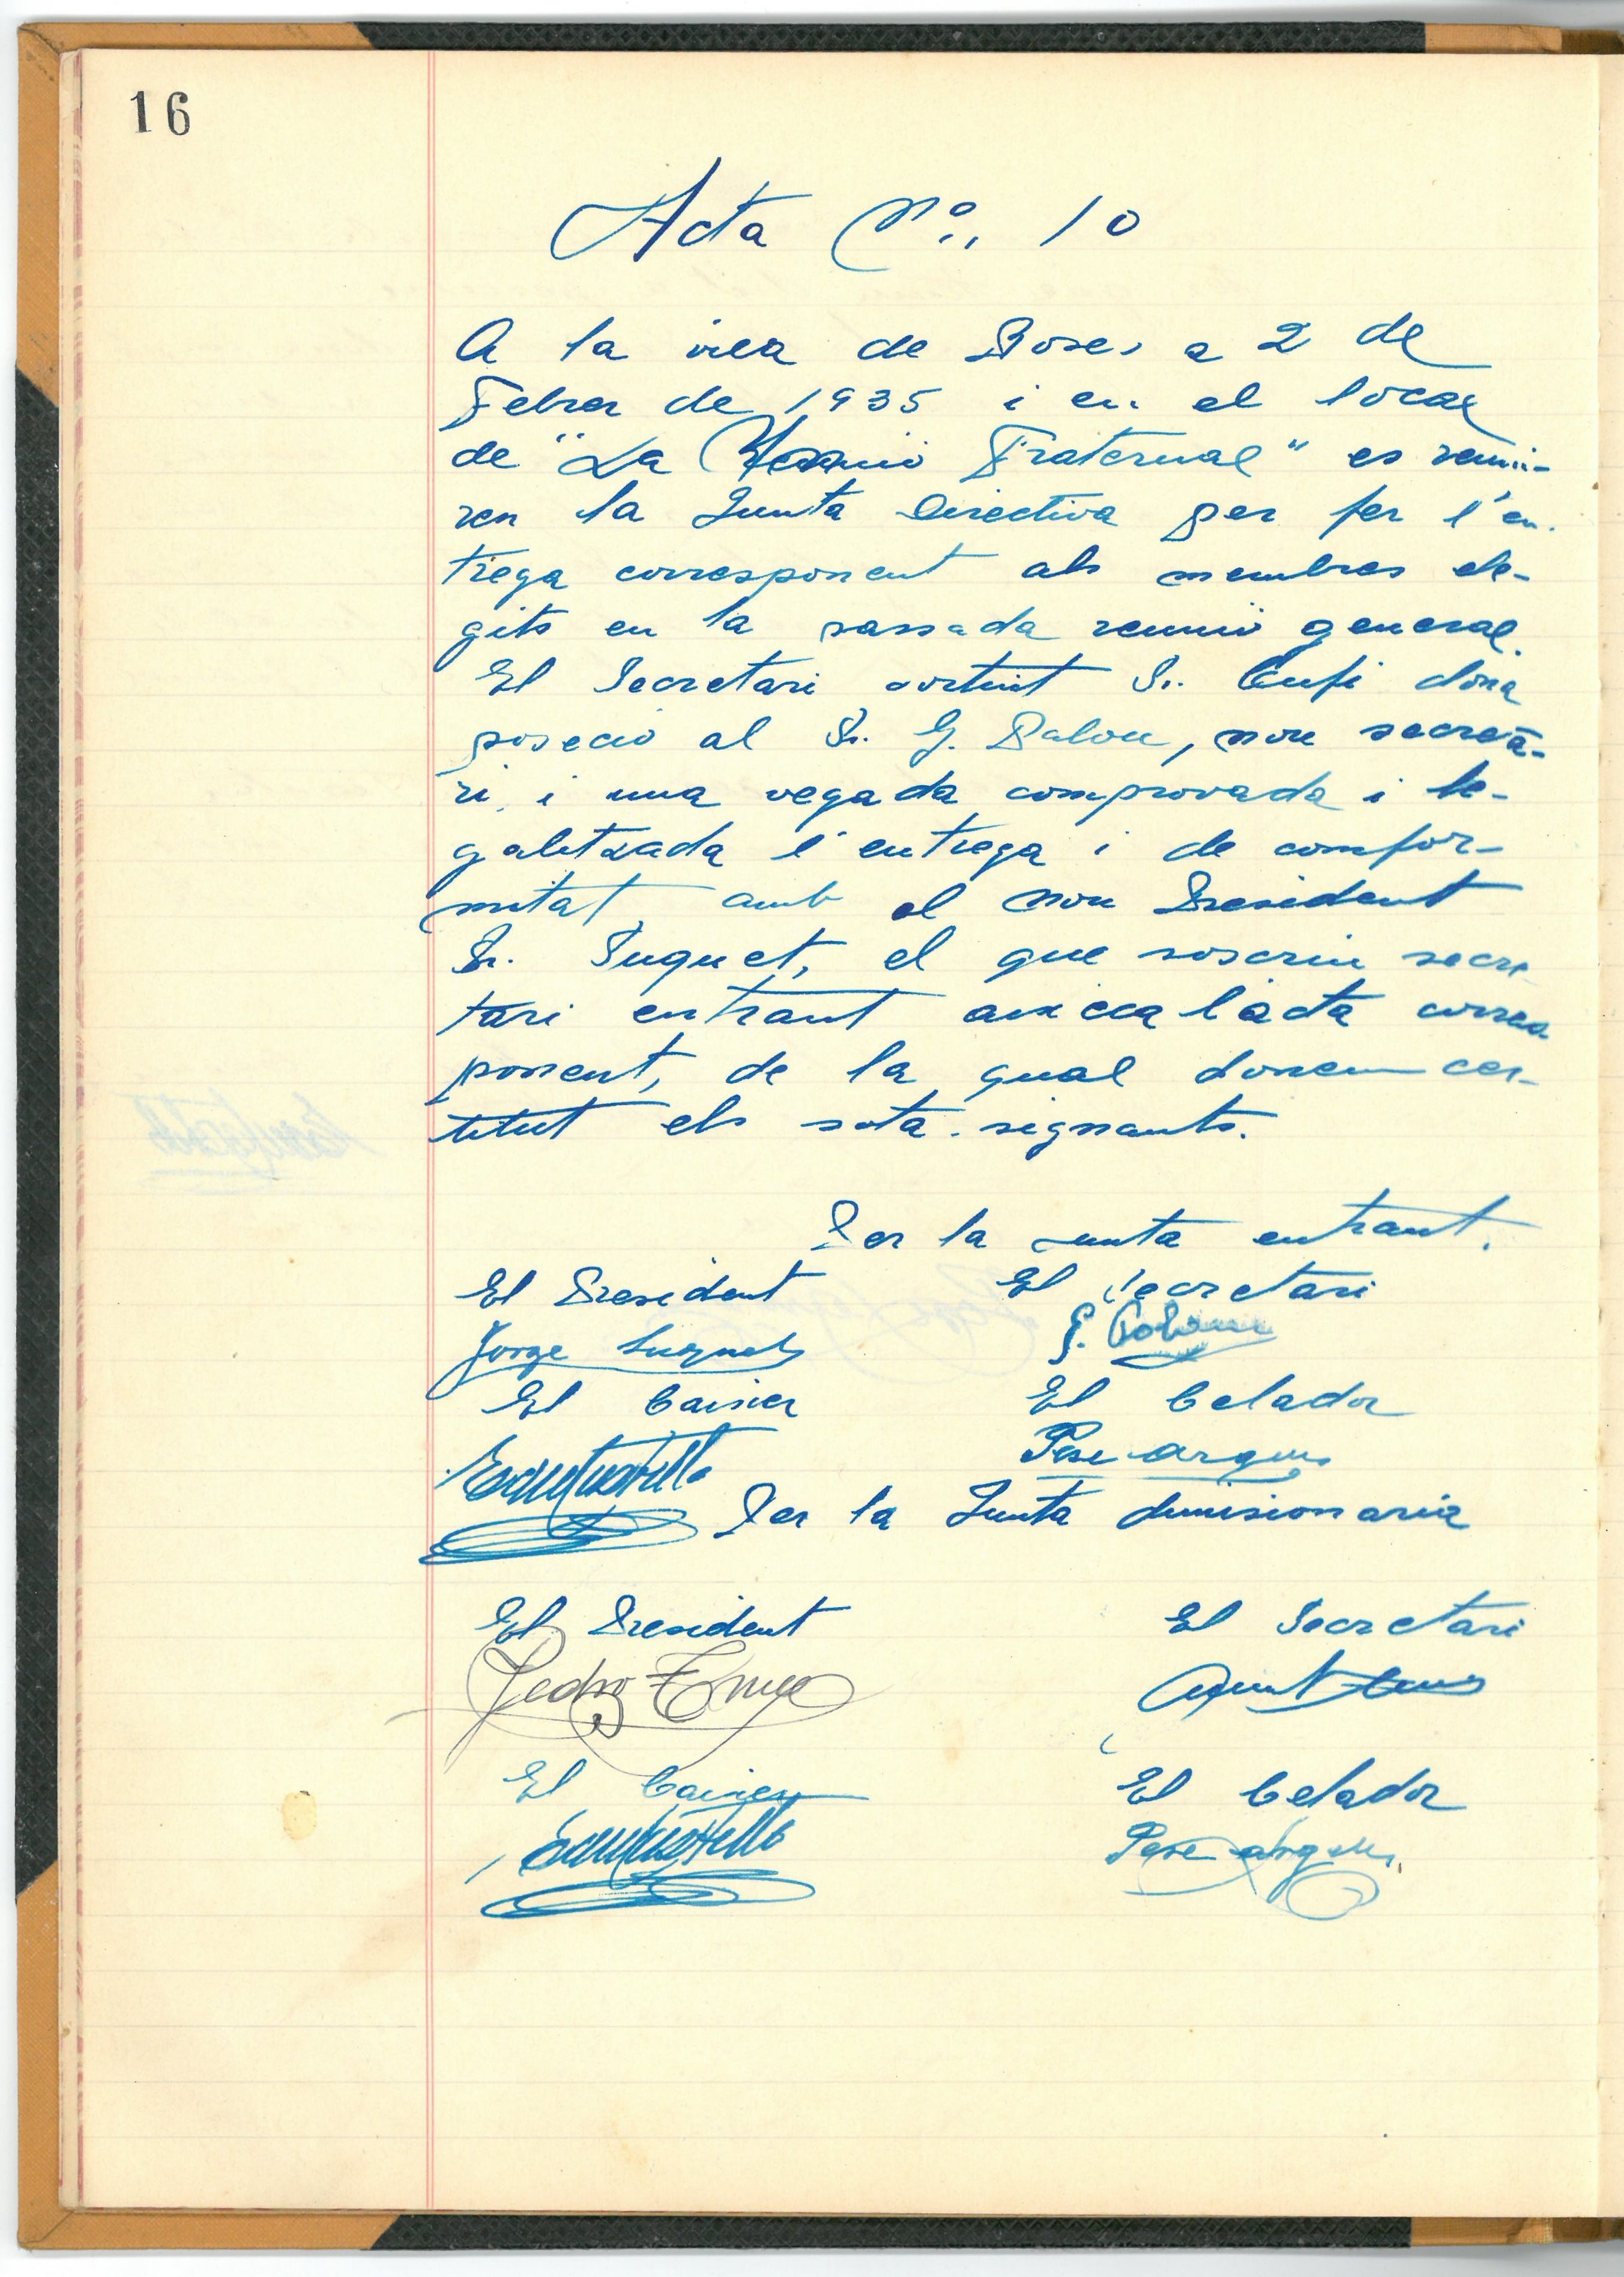 16
Acta Nº. 10
A la vila de Roses a 2 de
Febrer de 1935 i en el local
de "La Reunió Fraternal" es reuni-
ren la Junta Directiva per fer l'en-
trega corresponent als membres ele-
gits en la passada reunió general.
El Secretari sortint Sr. Cufi dona
poseció al Sr. G. Palou, nou secretà-
ri, i una vegada comprovada i le-
galitzada l'entrega i de confor-
mitat amb el nou President
Sr. Suquet, el que soscriu secre
tari entrant aixeca l'acta corres
ponent, de la qual donem cer-
titut els sota-signants.
Per la Junta entrant.
El President El Secretari
Jorge Suquet G. Palou
El Caixer El Celador
Pere
Per la Junta dimisionaria
El President El Secretari
Pedro
El Caixer El Celador
Pere